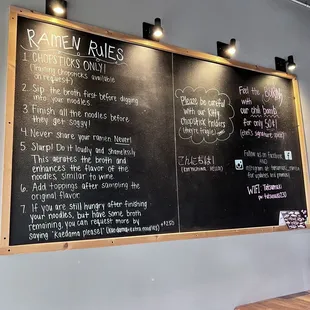 RAMEN RULES
1. CHOPSTICKS ONLY!
(Training Chopsticks available
on request)
2. Sip the broth first before digging
into your noodles.
3. Finish all the noodles before
they get soggy!
4. Never share your ramen. Never!
5. Slurp! Do it loudly and shamelessly
This aerates the broth and
enhances the flavor of the
noodles, similar to wine
6. Add toppings after sampling the
original flavor
7. If you are still hungry after finishing
your noodles, but have some broth
remaining, you can request more by
saying "Kaedama please!"
Please be
careful with
our Kitty
Chopstick Holders
(they're fragile)
こんにちは!
Feel the
with our
chili bombs
for only
50¢!
(chef's signature spice)
Follow us on Facebook
AND
Instagram
for updates and promos!
WIFI: